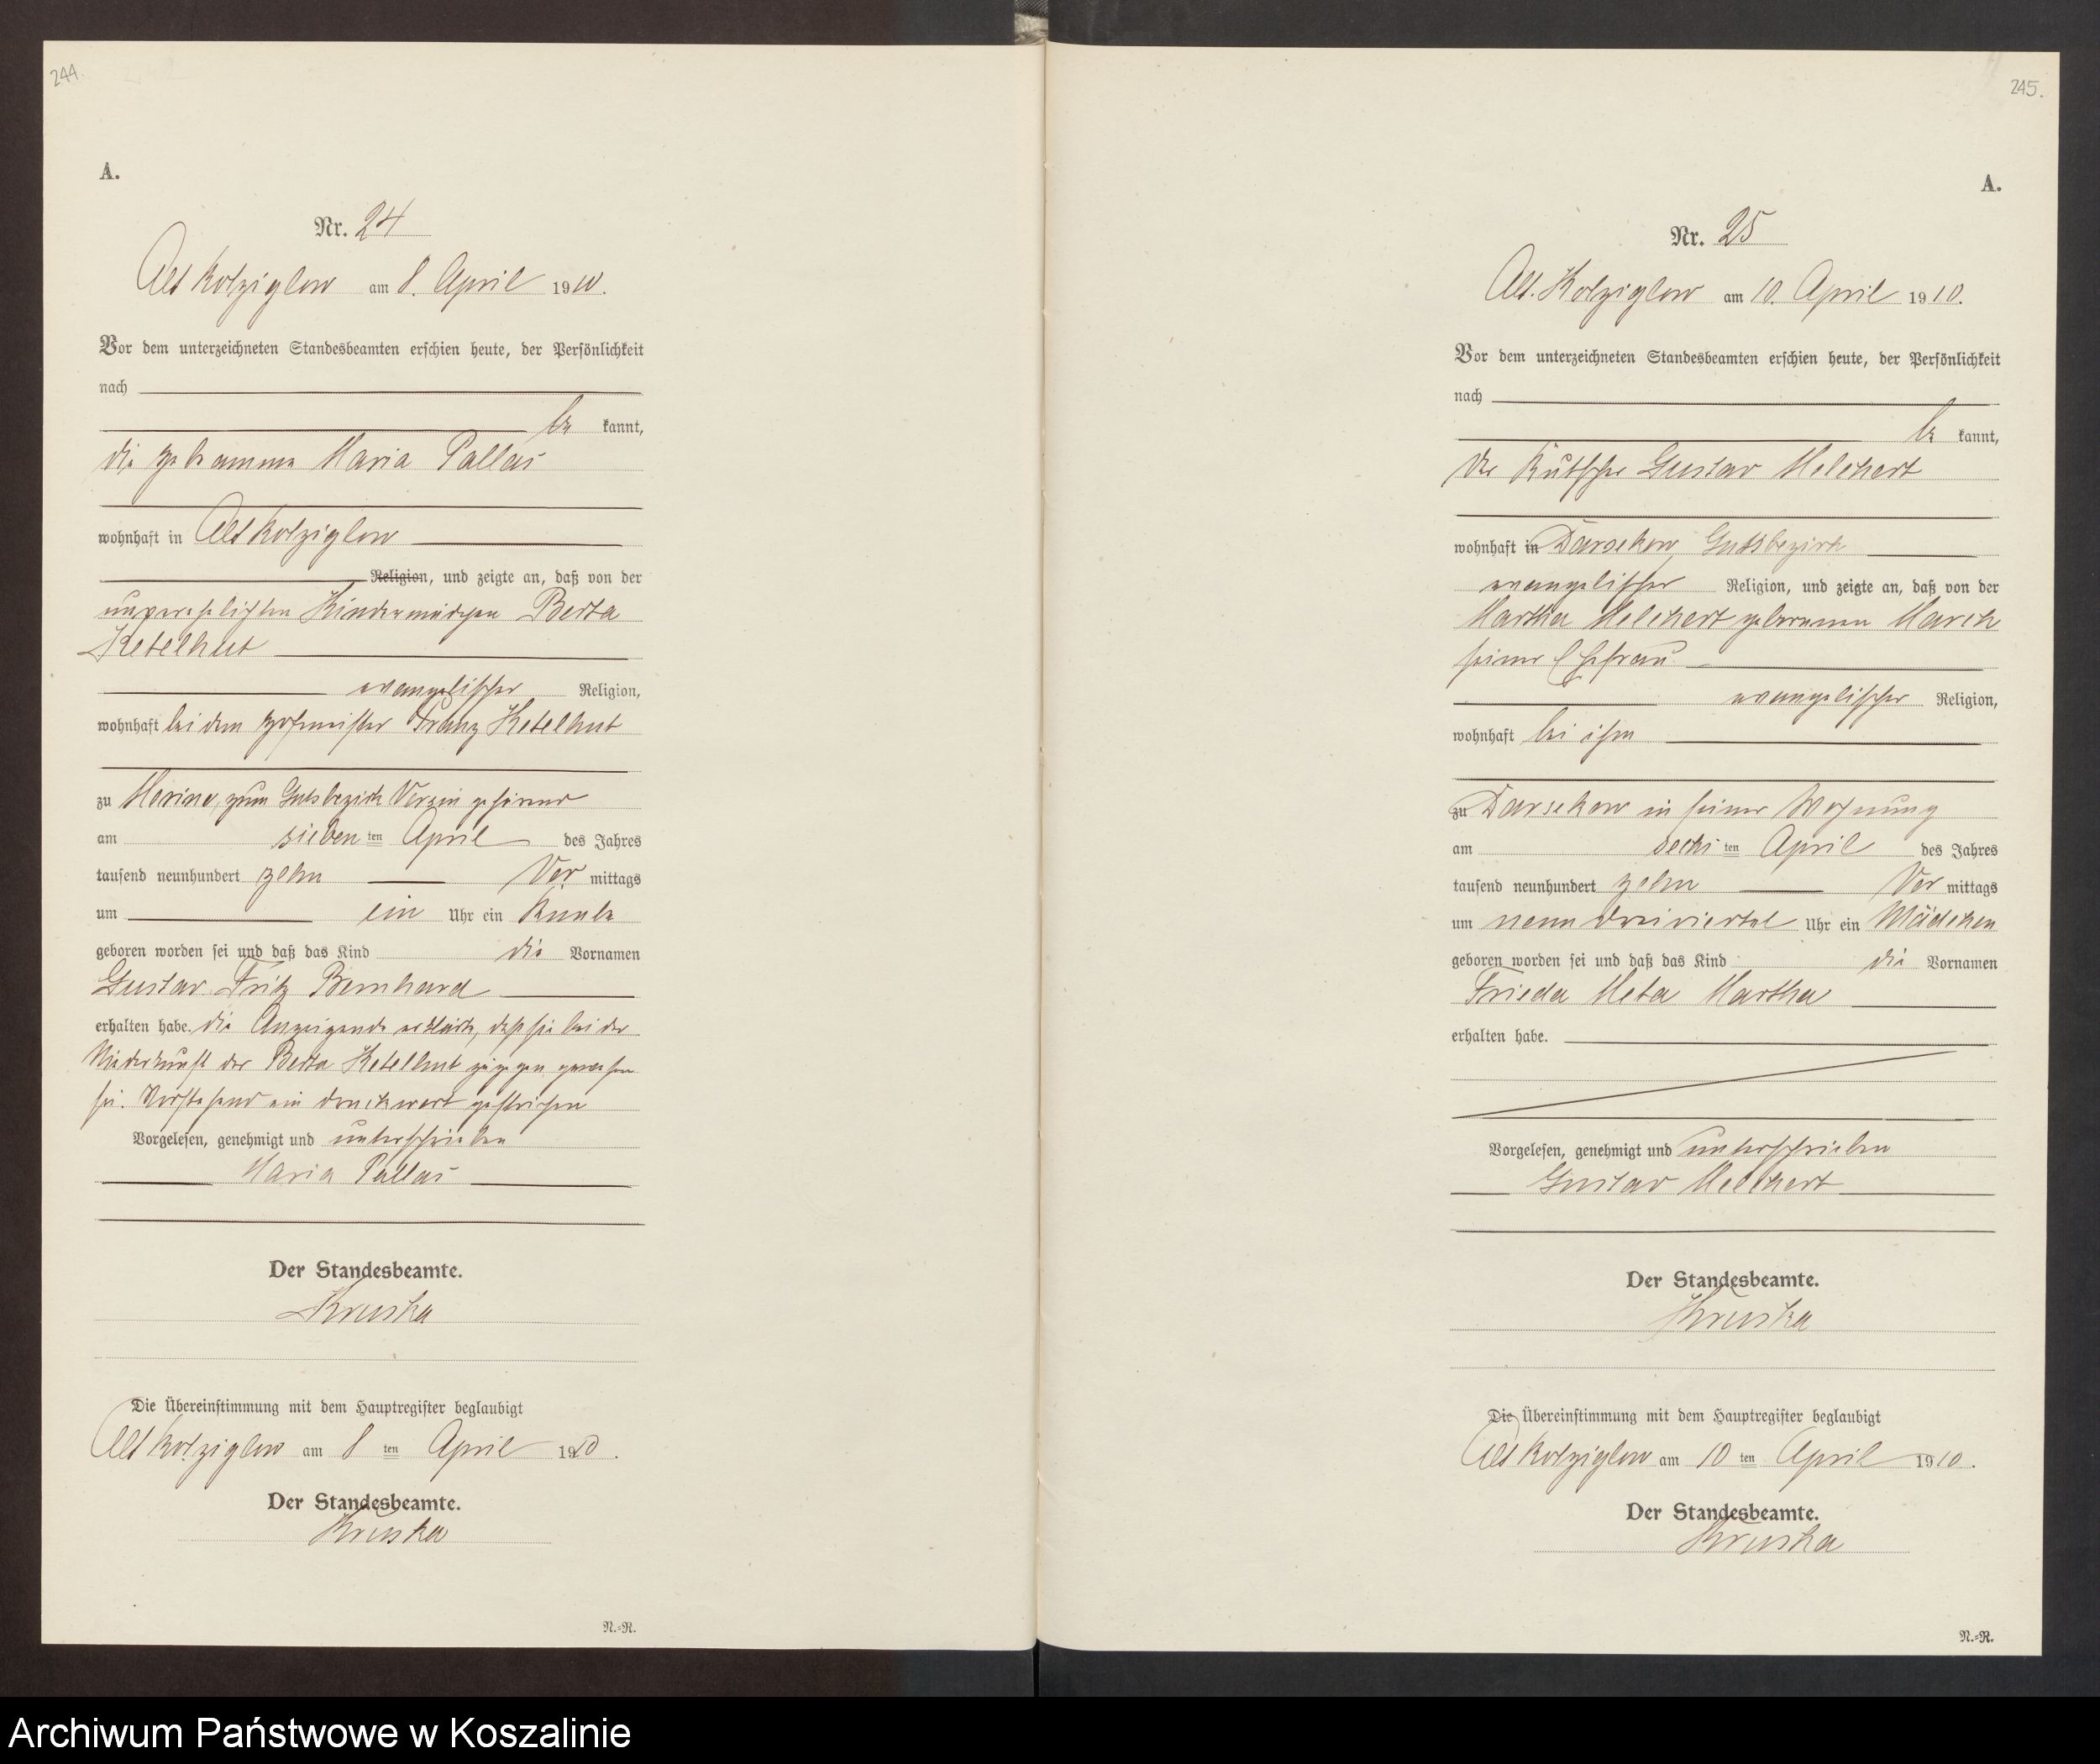 244.
A.
Nr. 24
Alt Kolziglow am 8. April 1910.
Vor dem unterzeichneten Standesbeamten erschien heute, der Persönlichkeit
nach
be kannt,
die Hebamme Maria Pallas
wohnhaft in Alt Kolziglow
Religion, und zeigte an, daß von der
unverehelichten Kindermädchen Berta
Ketelhut
evangelischer Religion,
wohnhaft bei dem Hofmeister Franz Ketelhut
zu Morino, zum Gutsbezirk Versin gehörend
am sieben ten April des Jahres
tausend neunhundert zehn Vor mittags
um ein Uhr ein Knabe
geboren worden sei und daß das Kind die Vornamen
Gustav Fritz Bernhard
erhalten habe. Die Anzeigende erklärte, daß sie bei der
Niederkunft der Berta Ketelhut zugegen gewesen
sei. Vorstehend ein Druckwort gestrichen
Vorgelesen, genehmigt und unterschrieben
Maria Pallas
Der Standesbeamte.
Kruska
Die Übereinstimmung mit dem Hauptregister beglaubigt
Alt Kolziglow am 8 ten April 1910.
Der Standesbeamte.
Kruska
N.=R.
245.
A.
Nr. 25
Alt. Kolziglow am 10. April 1910.
Vor dem unterzeichneten Standesbeamten erschien heute, der Persönlichkeit
nach
be kannt,
der Kutscher Gustav Melchert
wohnhaft in Darsekow Gutsbezirk
evangelischer Religion, und zeigte an, daß von der
Martha Melchert geborenen March
seiner Ehefrau
evangelischer Religion,
wohnhaft bei ihm
zu Darsekow in seiner Wohnung
am sechs ten April des Jahres
tausend neunhundert zehn Vor mittags
um neun dreiviertel Uhr ein Mädchen
geboren worden sei und daß das Kind die Vornamen
Frieda Meta Martha
erhalten habe.
Vorgelesen, genehmigt und unterschrieben
Gustav Melchert
Der Standesbeamte.
Kruska
Die Übereinstimmung mit dem Hauptregister beglaubigt
Alt Kolziglow am 10 ten April 1910.
Der Standesbeamte.
Kruska
N.=R.
Archiwum Państwowe w Koszalinie